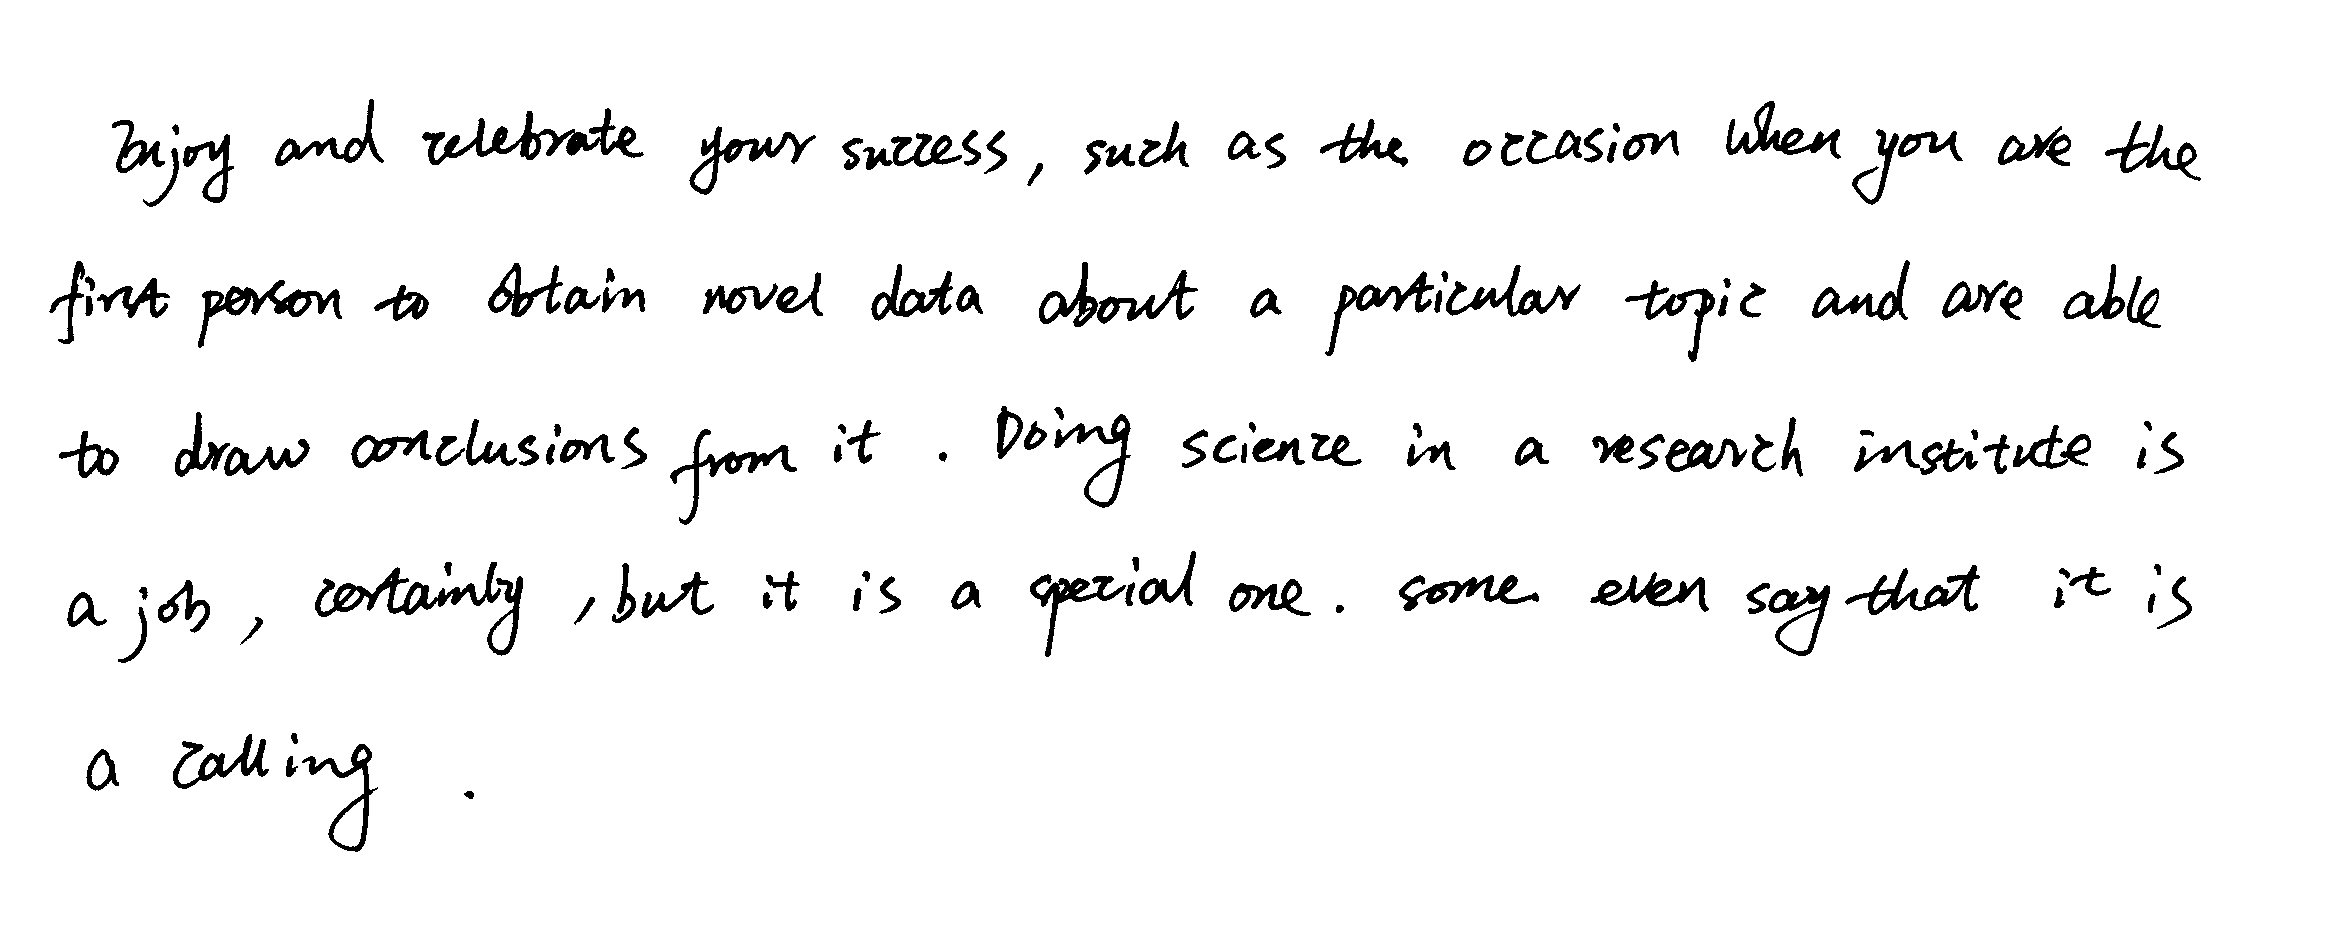 Enjoy and celebrate your success, such as the occasion when you are the
first person to obtain novel data about a particular topic and are able
to draw conclusions from it. Doing science in a research institute is
a job, certainly, but it is a special one. some even say that it is
a calling.